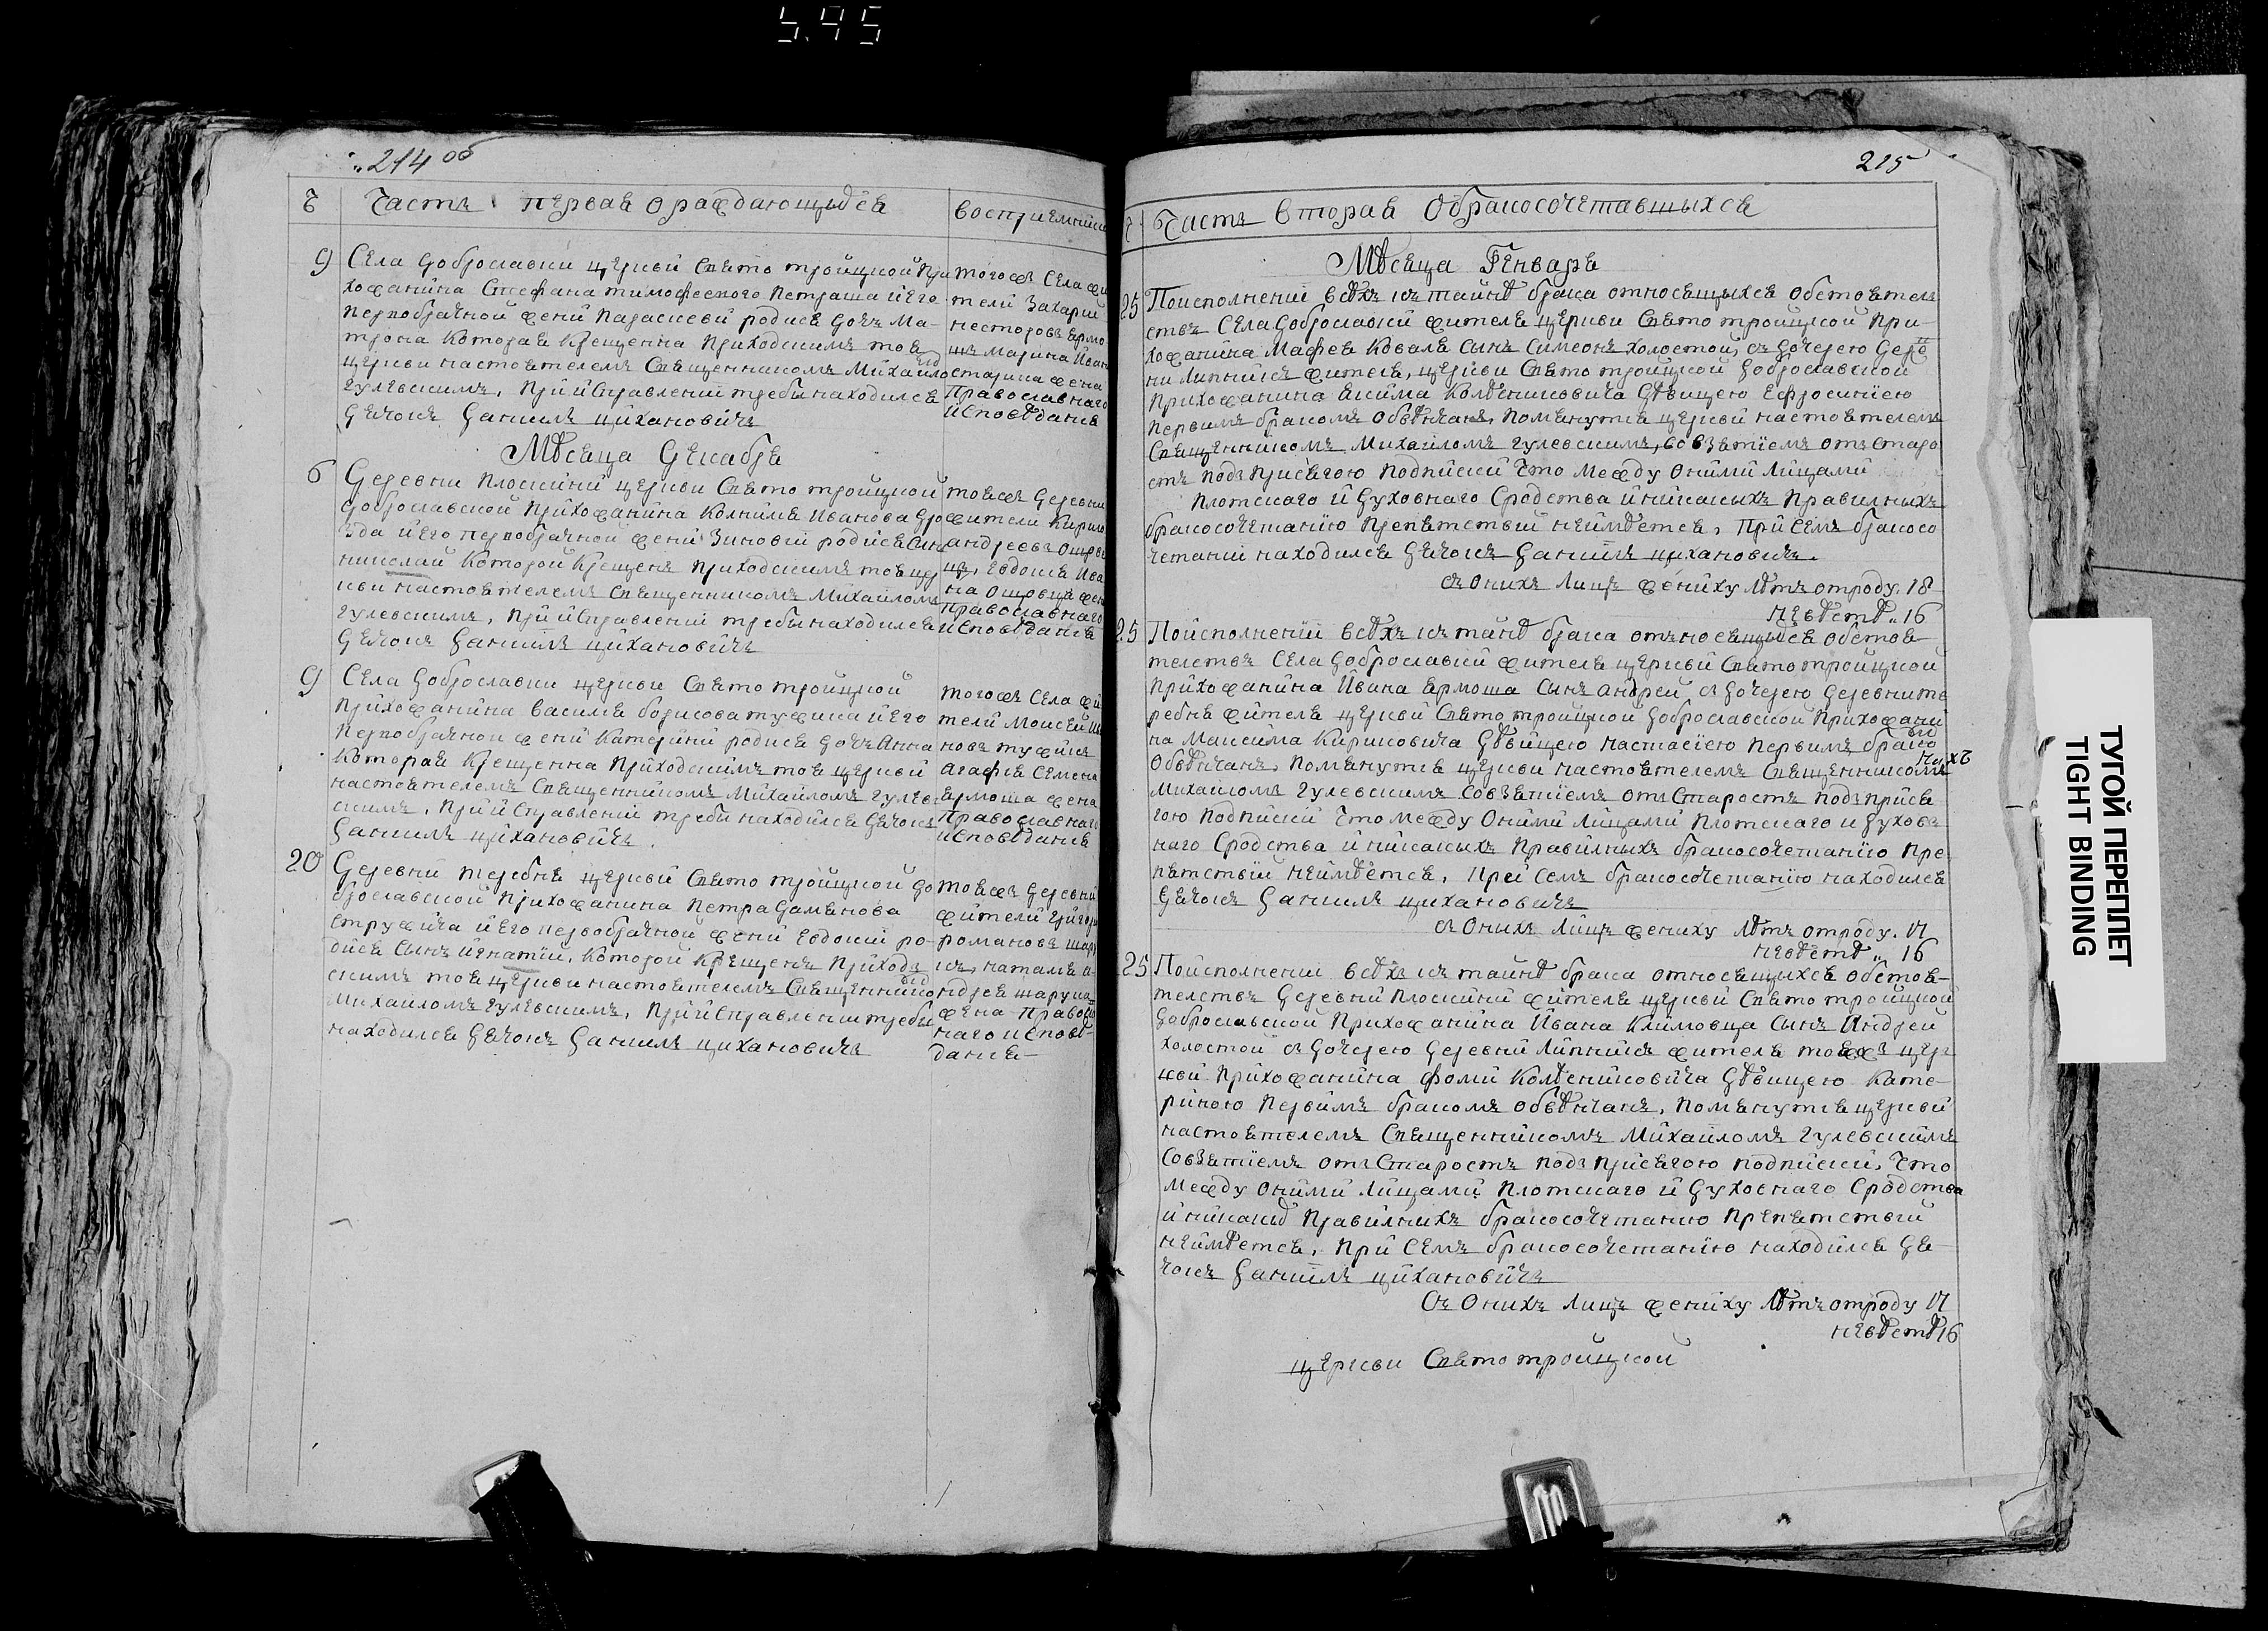 214 об
Ч Часть первая о раждающыхся восприемники
9 Села Доброславки церкви Свято троицкой при
хожанина Стефана тимофеевого Петраша и его
первобрачной жени Параскеви родися дочь Ма-
трона которая крещенна приходскимъ тоя
церкви настоятелемъ Священникомъ Михаило
гулевскимъ, при исправлении требы находился
Дячокъ Даниилъ цихановичъ
тогожъ Села жи
тели Захарий
несторовъ ярмо
шъ марина Иван
старика жена
Православнаго
исповѣдания
Мѣсяца Декабря
6 Деревни Плоскини церкви Свято троицкой
доброславской прихожанина Иванова
и его первобрачной жени Зиновии родися Синъ
николай которой крещенъ приходскимъ тоя цер
кви настоятелемъ Священникомъ Михаиломъ
гулевскимъ, при исправлении требы находился
Дячокъ Даниилъ цихановичъ
тояжъ Деревни
жители Кирило
андреевъ
Евдокия Ива
на жен
Православнаго
исповѣдания
9 Села Доброславки церкви Свято троицкой
прихожанина василия борисова тужика и его
первобрачной жени Катерини родися дочь Анна
которая крещенна приходскимъ тоя церкви
настоятелемъ Священникомъ Михаиломъ гулев
скимъ, при исправлении требы находился Дячокъ
Даниилъ цихановичъ
тогожъ Села жи
тели Моисей Ива
новъ тужикъ
агафия Семена
Ярмоша жена
Православнаго
исповѣдания
20 Деревни теребня церкви Свято троицкой до
брославской прихожанина Петра Дамянова
струфича и его первобрачной жени Евдокии ро-
дися Сынъ игнатий, которой крещенъ приход
скимъ тоя церкви настоятелемъ Священнико
Михаиломъ гулевскимъ, при исправлении требы
находился Дячокъ Даниилъ цихановичъ
тояжъ Деревни
жители Григори
романовъ
наталия а-
ндрея
жена Правосла
наго исповѣ-
дания
215
Ч Часть вторая о бракосочетавшыхся
Мѣсяца Генваря
25 По исполнении всѣхъ къ тайнѣ брака относящыхся обстоятел
ствъ Села Доброславки жителя церкви Свято троицкой при-
хожанина Мафея Коваля Сынъ Симеонъ холостой, съ дочерею Дере
ни Липникъ жителя, церкви Свято троицкой доброславской
прихожанина Якима Колѣниковича Дѣвицею Ефросиниею
первимъ бракомъ обвѣнчанъ, помянутия церкви настоятелемъ
Священникомъ Михаиломъ гулевскимъ, со взятиемъ отъ старо
стъ подъ присягою подписки что между оними лицами
плотскаго и духовнаго Сродства и никакихъ правилныхъ
бракосочетанию препятствий неимѣется, при семъ бракосо
четании находился Дячокъ Даниилъ цихановичъ.
съ онихъ лицъ жениху лѣтъ отроду. 18
невѣстѣ. 16
25 По исполнении всѣхъ къ тайнѣ брака отъносящыхся обстоя-
телствъ Села Доброславки жителя церкви Свято троицкой
прихожанина Ивана Ярмоша Сынъ андрей, съ дочерею Деревни те
ребня жителя церкви Свято троицкой доброславской прихожани
на Максима Кириковича Дѣвицею настасиею первимъ брако
обвѣнчанъ, помянутия церкви настоятелемъ Священникомъ
Михаиломъ гулевскимъ со взятиемъ отъ старостъ подъ прися
гою подписки что между оними лицами плотскаго и духов
наго Сродства и никакихъ правилныхъ бракосочетанию пре
пятствий неимѣется, при семъ бракосочетанию находился
Дячокъ Даниилъ цихановичъ
съ онихъ лицъ жениху лѣтъ отроду. 17
невѣстѣ " 16
25 По исполнении всѣхъ къ тайнѣ брака относящыхся обстоя-
телствъ Деревни плоскини жителя церкви Свято троицкой
доброславской прихожанина Ивана Климовца Сынъ Андрей
холостой съ дочерею Деревни Липникъ жителя тояжъ цер
кви прихожанина фоми Колѣниковича Дѣвицею Кате-
риною первимъ бракомъ обвѣнчанъ, помянутия церкви
настоятелемъ Священникомъ Михаиломъ гулевскимъ
со взятиемъ отъ старостъ подъ присягою подписки, что
между оними лицами плотскаго и духовнаго Сродства
и никакѣ правилнихъ бракосочетанию препятствий
неимѣется, при семъ бракосочетанию находился Дя-
чокъ Даниилъ цихановичъ
съ онихъ лицъ жениху лѣтъ отроду 17
невѣстѣ 16
церкви Свято троицкой
ТУГОЙ ПЕРЕПЛЕТ
TIGHT BINDING